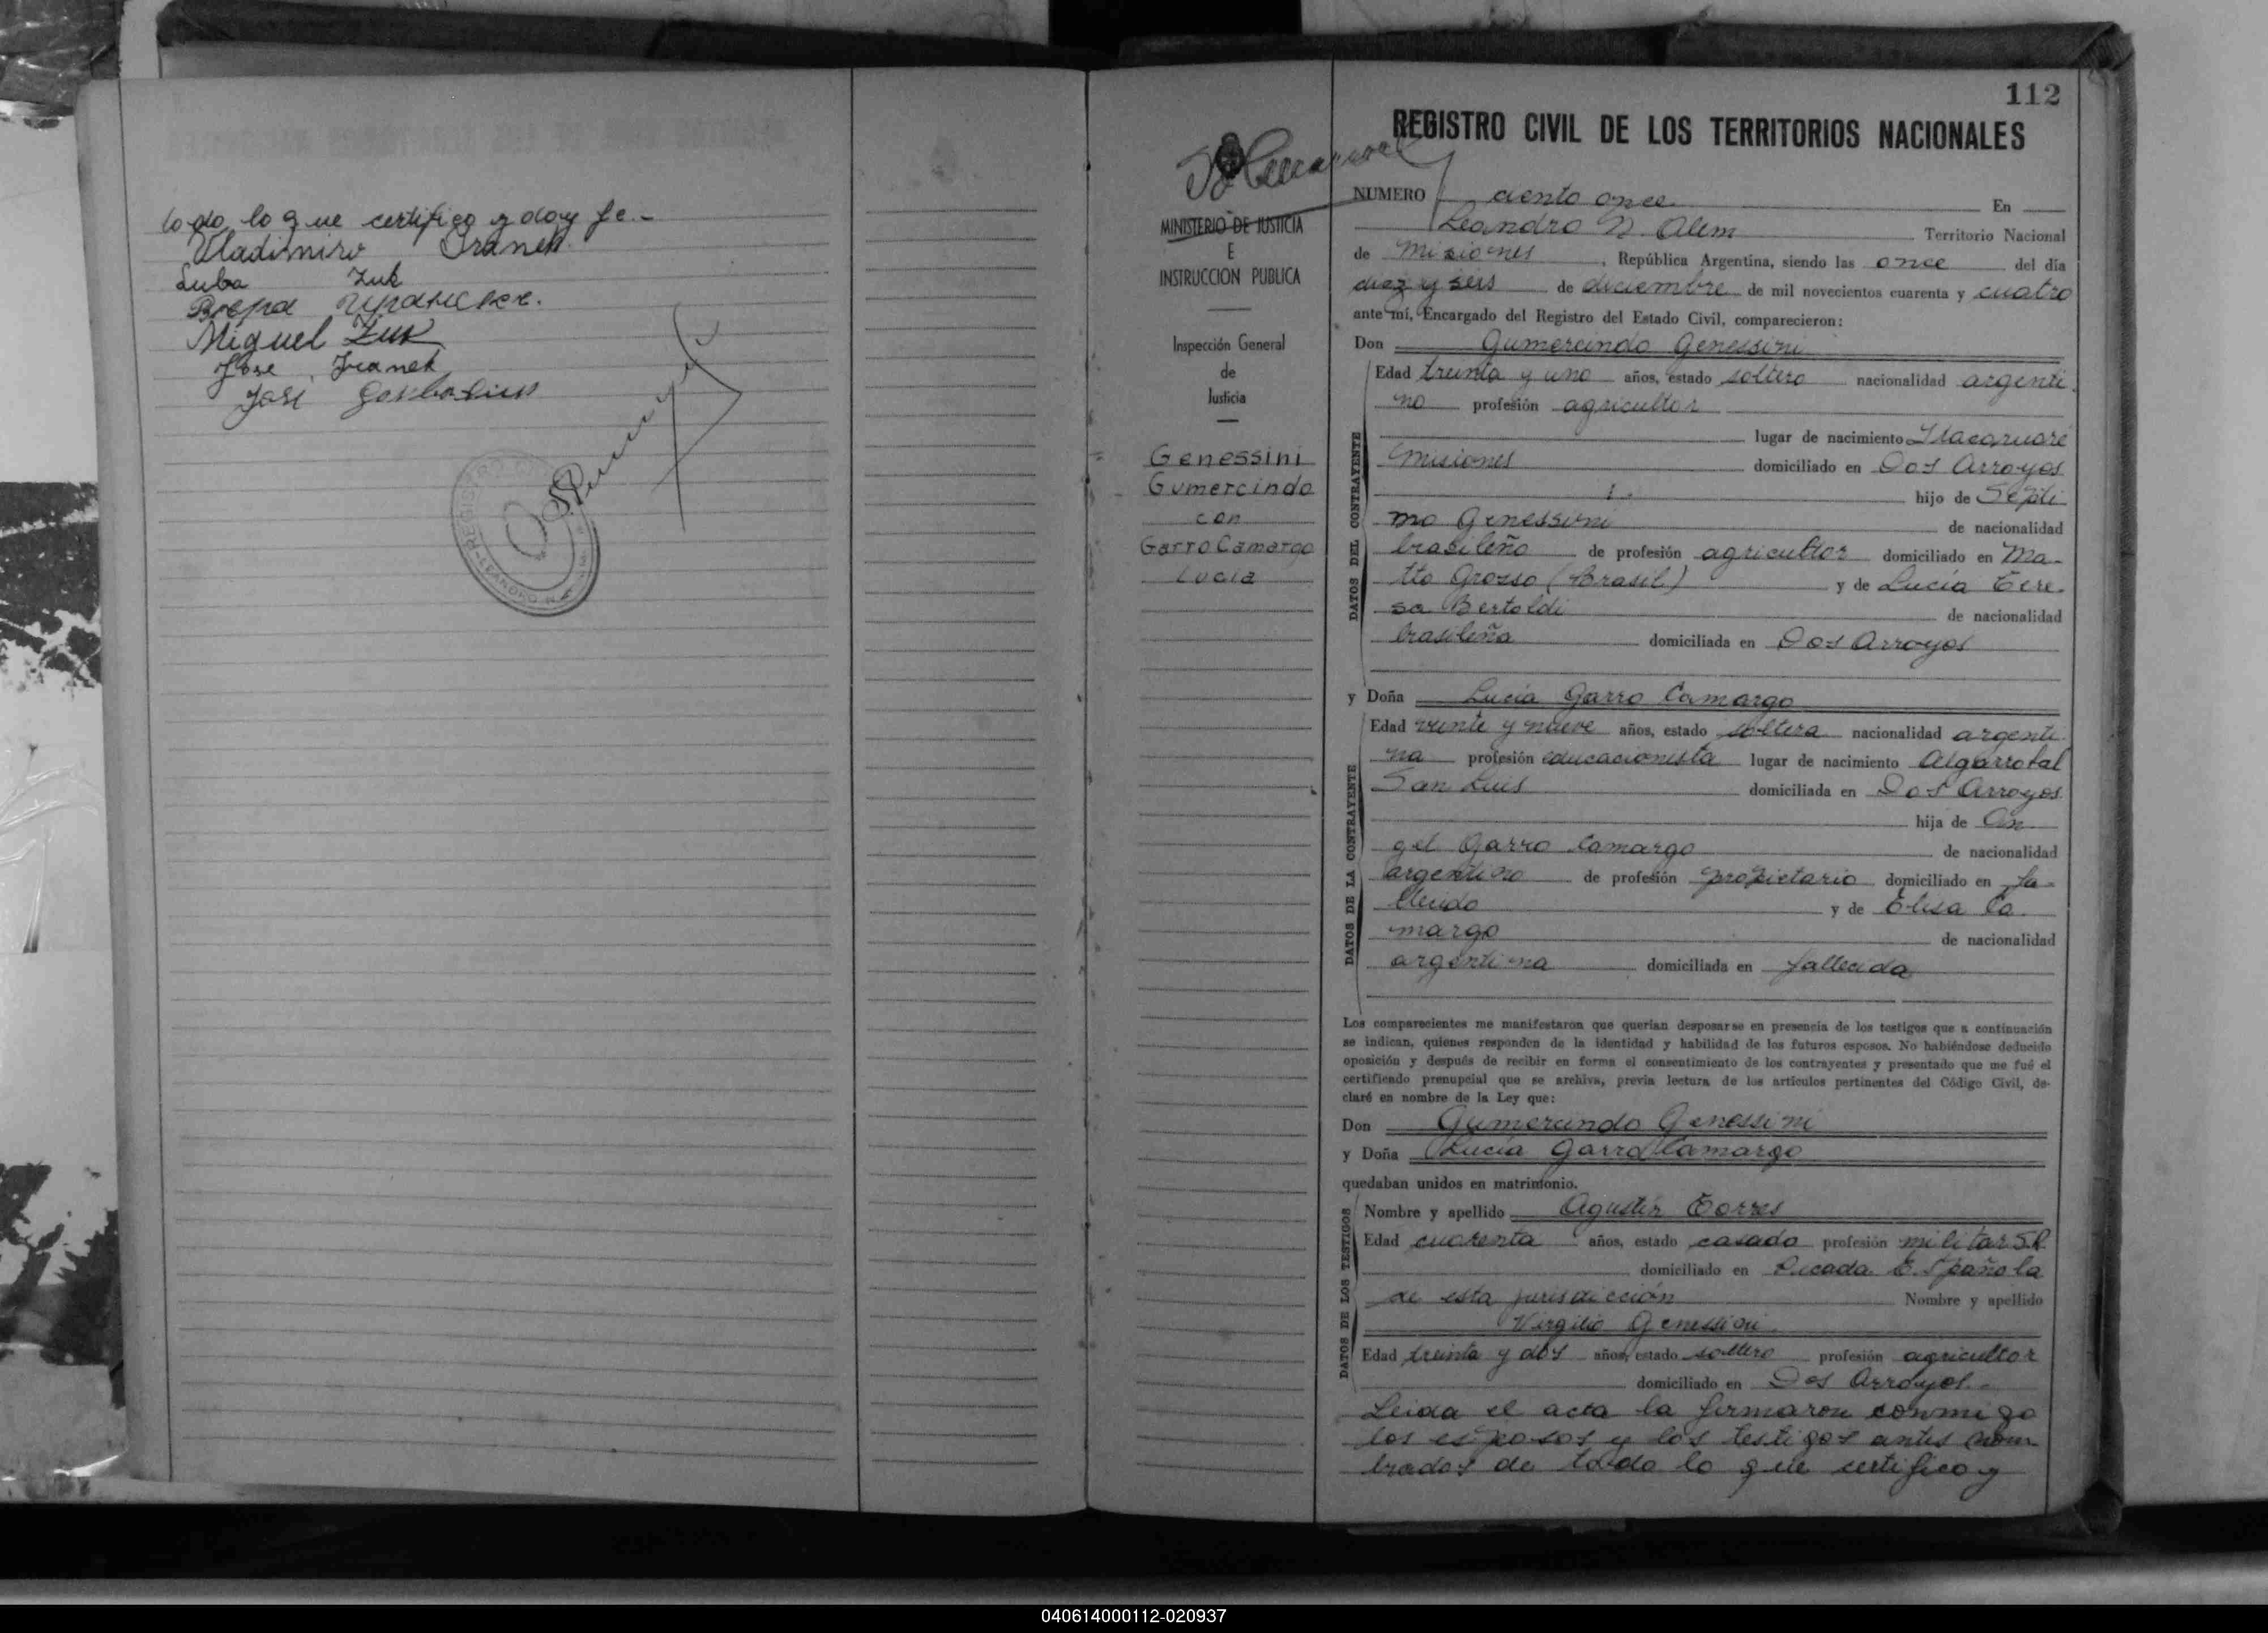 todo lo que certifico y doy fe.-
Vladimiro Iranek
Luba Zuk
Miguel Zuk
José Iranek
José
REGISTRO
LEANDRO N. A
112
REGISTRO CIVIL DE LOS TERRITORIOS NACIONALES
MINISTERIO DE JUSTICIA
E
INSTRUCCION PUBLICA
Inspección General
de
Justicia
Genessini
Gumercindo
con
Garro Camargo
Lucia
NUMERO ciento once En
Leandro N. Alem Territorio Nacional
de Misiones, República Argentina, siendo las once del día
diez y seis de diciembre de mil novecientos cuarenta y cuatro
ante mí, Encargado del Registro del Estado Civil, comparecieron:
Don Gumercindo Genessini
DATOS DEL CONTRAYENTE
Edad treinta y uno años, estado soltero nacionalidad argenti
no profesión agricultor
lugar de nacimiento Itacaruaré
Misiones domiciliado en Dos Arroyos
hijo de Septi
mo Genessini de nacionalidad
brasileño de profesión agricultor domiciliado en Ma-
tto Grosso (Brasil) y de Lucía Tere-
sa Bertoldi de nacionalidad
brasileña domiciliada en Dos Arroyos
y Doña Lucía Garro Camargo
DATOS DE LA CONTRAYENTE
Edad veinte y nueve años, estado soltera nacionalidad argenti-
na profesión educacionista lugar de nacimiento Algarrotal
San Luis domiciliada en Dos Arroyos
hija de An
gel Garro Camargo de nacionalidad
argentino de profesión propietario domiciliado en fa-
llecido y de Elisa Ca-
margo de nacionalidad
argentina domiciliada en fallecida
Los comparecientes me manifestaron que querían desposarse en presencia de los testigos que a continuación
se indican, quienes responden de la identidad y habilidad de los futuros esposos. No habiéndose deducido
oposición y después de recibir en forma el consentimiento de los contrayentes y presentado que me fué el
certificado prenupcial que se archiva, previa lectura de los artículos pertinentes del Código Civil, de-
claré en nombre de la Ley que:
Don Gumercindo Genessini
y Doña Lucía Garro Camargo
quedaban unidos en matrimonio.
DATOS DE LOS TESTIGOS
Nombre y apellido Agustín Torres
Edad cuarenta años, estado casado profesión militar S.R.
domiciliado en Picada Española
de esta jurisdicción Nombre y apellido
Virgilio Genessini
Edad treinta y dos años, estado soltero profesión agricultor
domiciliado en Dos Arroyos.-
Leida el acta la firmaron conmigo
los esposos y los testigos antes nom
brados de todo lo que certifico y
040614000112-020937